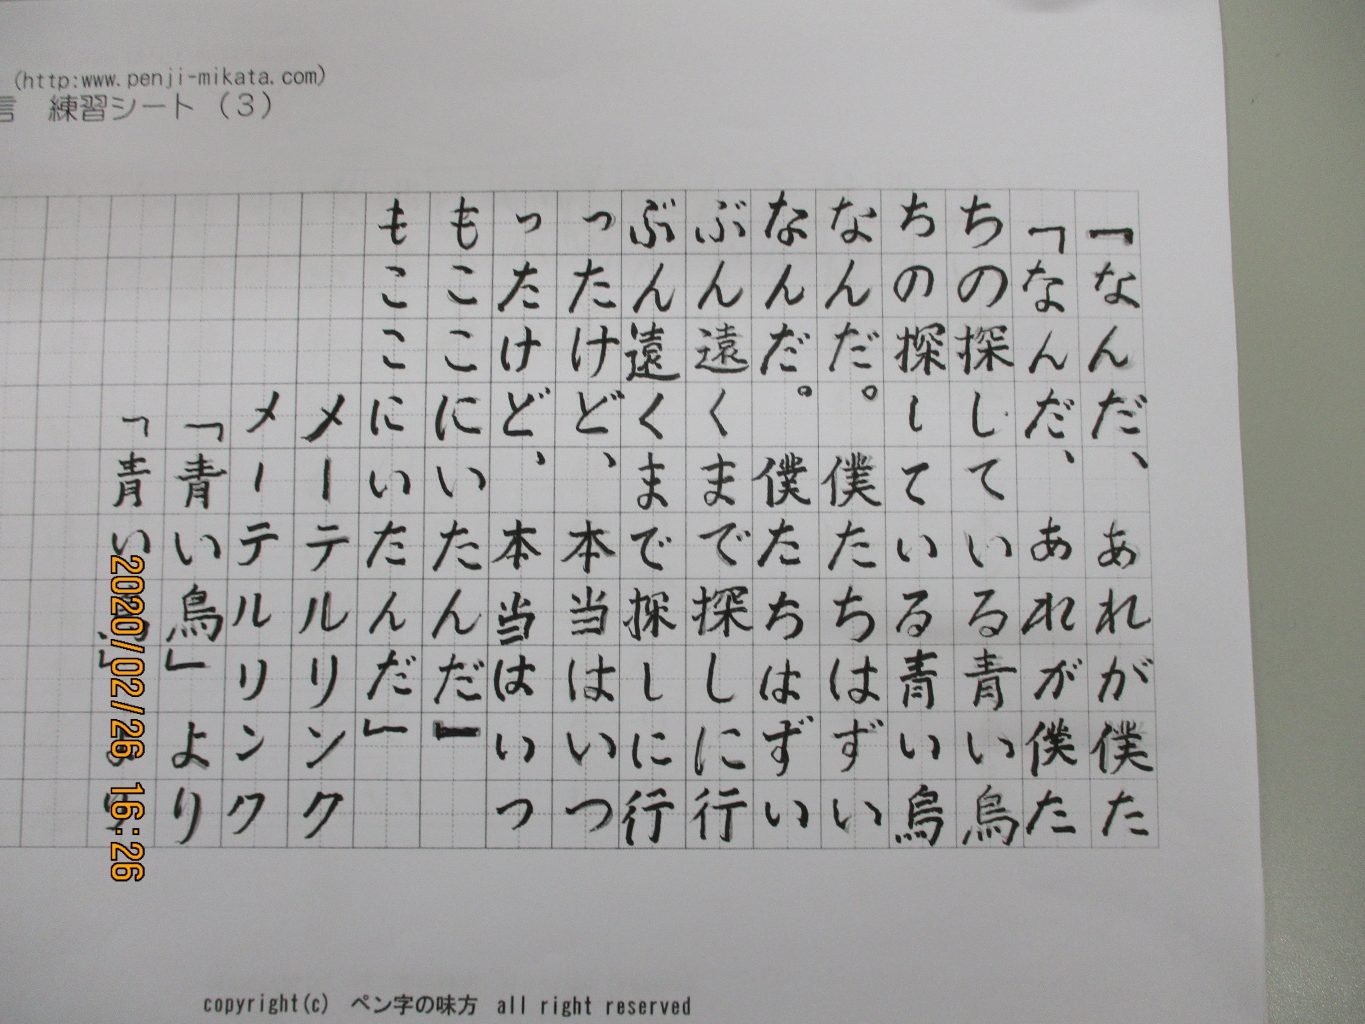 (http:www.penji-mikata.com)
言 練習シート（3）
「なんだ、あれが僕た
「なんだ、あれが僕た
ちの探している青い鳥
ちの探している青い鳥
なんだ。僕たちはずい
なんだ。僕たちはずい
ぶん遠くまで探しに行
ぶん遠くまで探しに行
ったけど、本当はいつ
ったけど、本当はいつ
もここにいたんだ」
もここにいたんだ」
メーテルリンク
メーテルリンク
「青い鳥」より
「青い鳥」より
2020/02/26 16:26
copyright(c) ペン字の味方 all right reserved